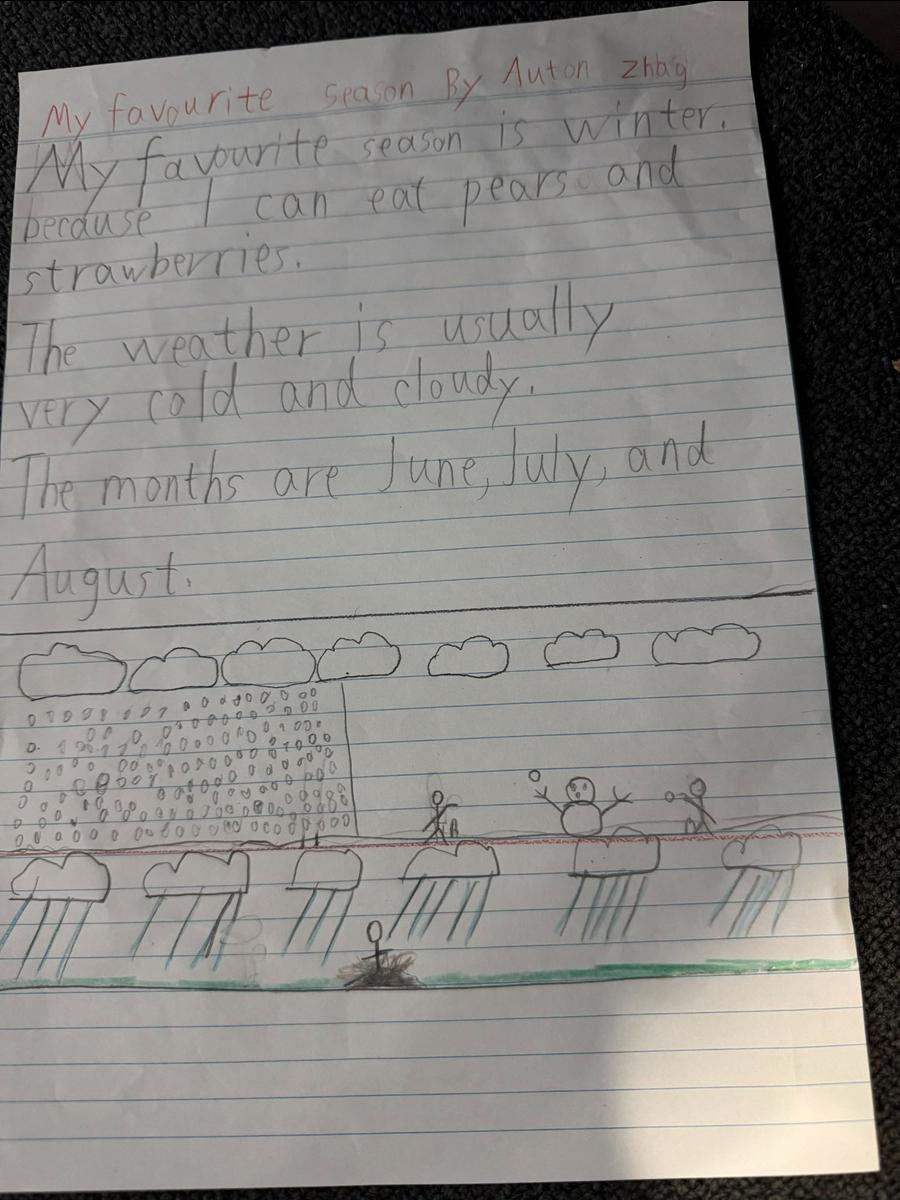 My favourite season By Auton Zhbg
My favourite season is winter.
because I can eat pears and
strawberries.
The weather is usually
very cold and cloudy.
The months are June, July, and
August.